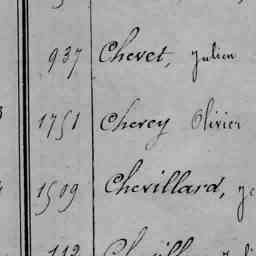 937 Chevet, Julien
1751 Cherey Olivier
1509 Chevillard,